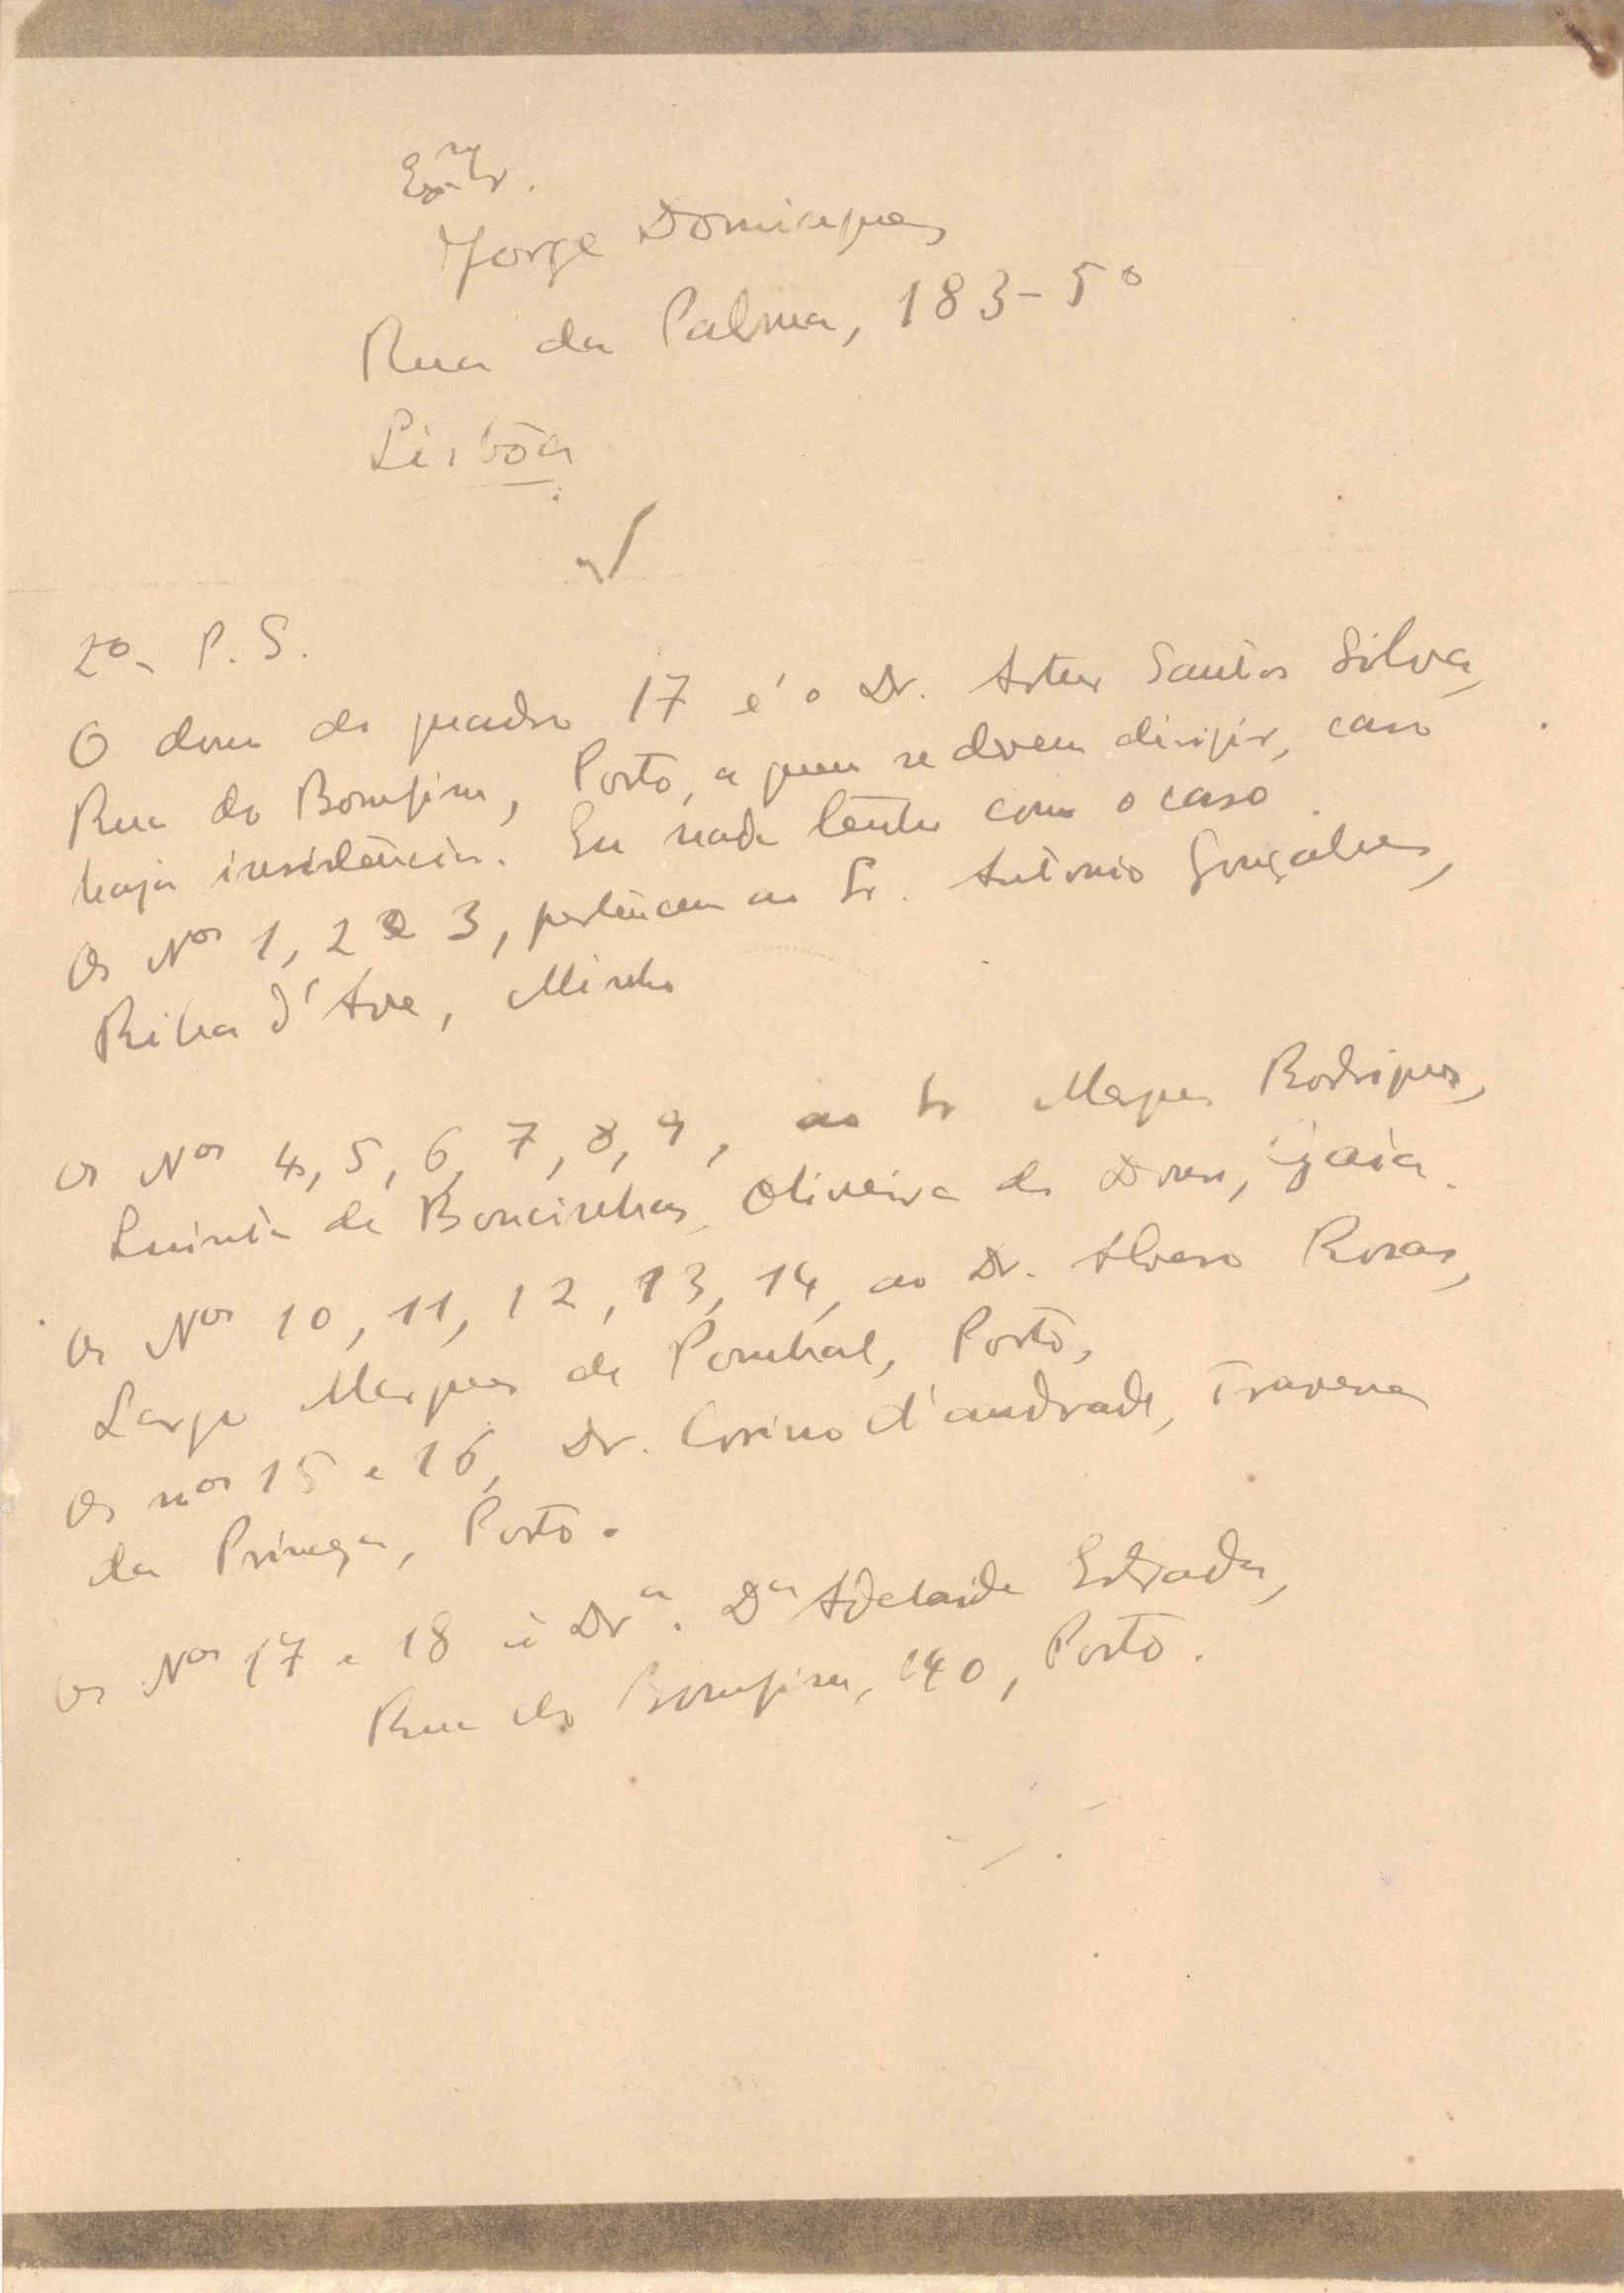 Exmo Sr.
Jorge Domingues
Rua da Palma, 183-5º
Lisbôa
2º- P. S.
O dono do quadro 17 é o Dr. Artur Santos Silva,
Rua do Bomfim, Porto, a quem se devem dirigir, caso
haja insistência. Eu nada tenho com o caso.
Os Nos 1, 2 e 3, pertencem ao Sr. António Gonçalves,
Riba d'Ave, Minho
Os Nos 4, 5, 6, 7, 8, 9, ao Sr Marques Rodrigues,
Quinta de Boucinhas, Oliveira do Douro, Gaia.
Os Nos 10, 11, 12, 13, 14, ao Dr. Alvaro Rosas,
Largo Marques de Pombal, Porto,
Os nos 15 e 16, Dr. Corino d'andrade, Travessa
da Prineza, Porto.
Os Nos 17 e 18 à Drª. Dª Adelaide Estrada,
Rua do Bomfim, 140, Porto.